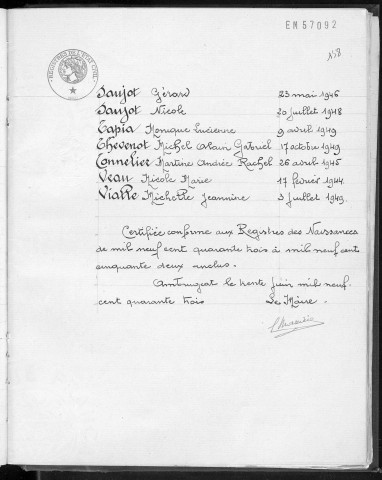 EM57092
REGISTRES DE L'ETAT CIVIL
Saujot Gérard 23 mai 1946
Saujot Nicole 20 juillet 1948
Tapia Monique Lucienne 9 avril 1949
Thevenot Michel Alain Gabriel 17 octobre 1949
Tonnelier Martine Andrée Rachel 26 avril 1945
Veau Nicole Marie 17 février 1944.
Viatte Michelle Jeannine 3 juillet 1949.
Certifiée conforme aux Registres des Naissances
de mil neuf cent quarante trois à mil neuf cent
cinquante deux inclus.
le trente juin mil neuf
cent quarante trois Le Maire.